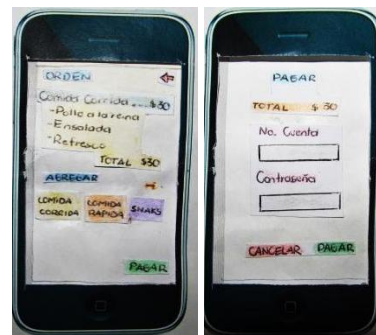 ORDEN
Comida Corrida....$30
-Pollo a la reina
-Ensalada
-Refresco
TOTAL $30
AGREGAR
COMIDA CORRIDA
COMIDA RAPIDA
SNAKS
PAGAR
PAGAR
TOTAL $30
No. Cuenta
Contraseña
CANCELAR PAGAR